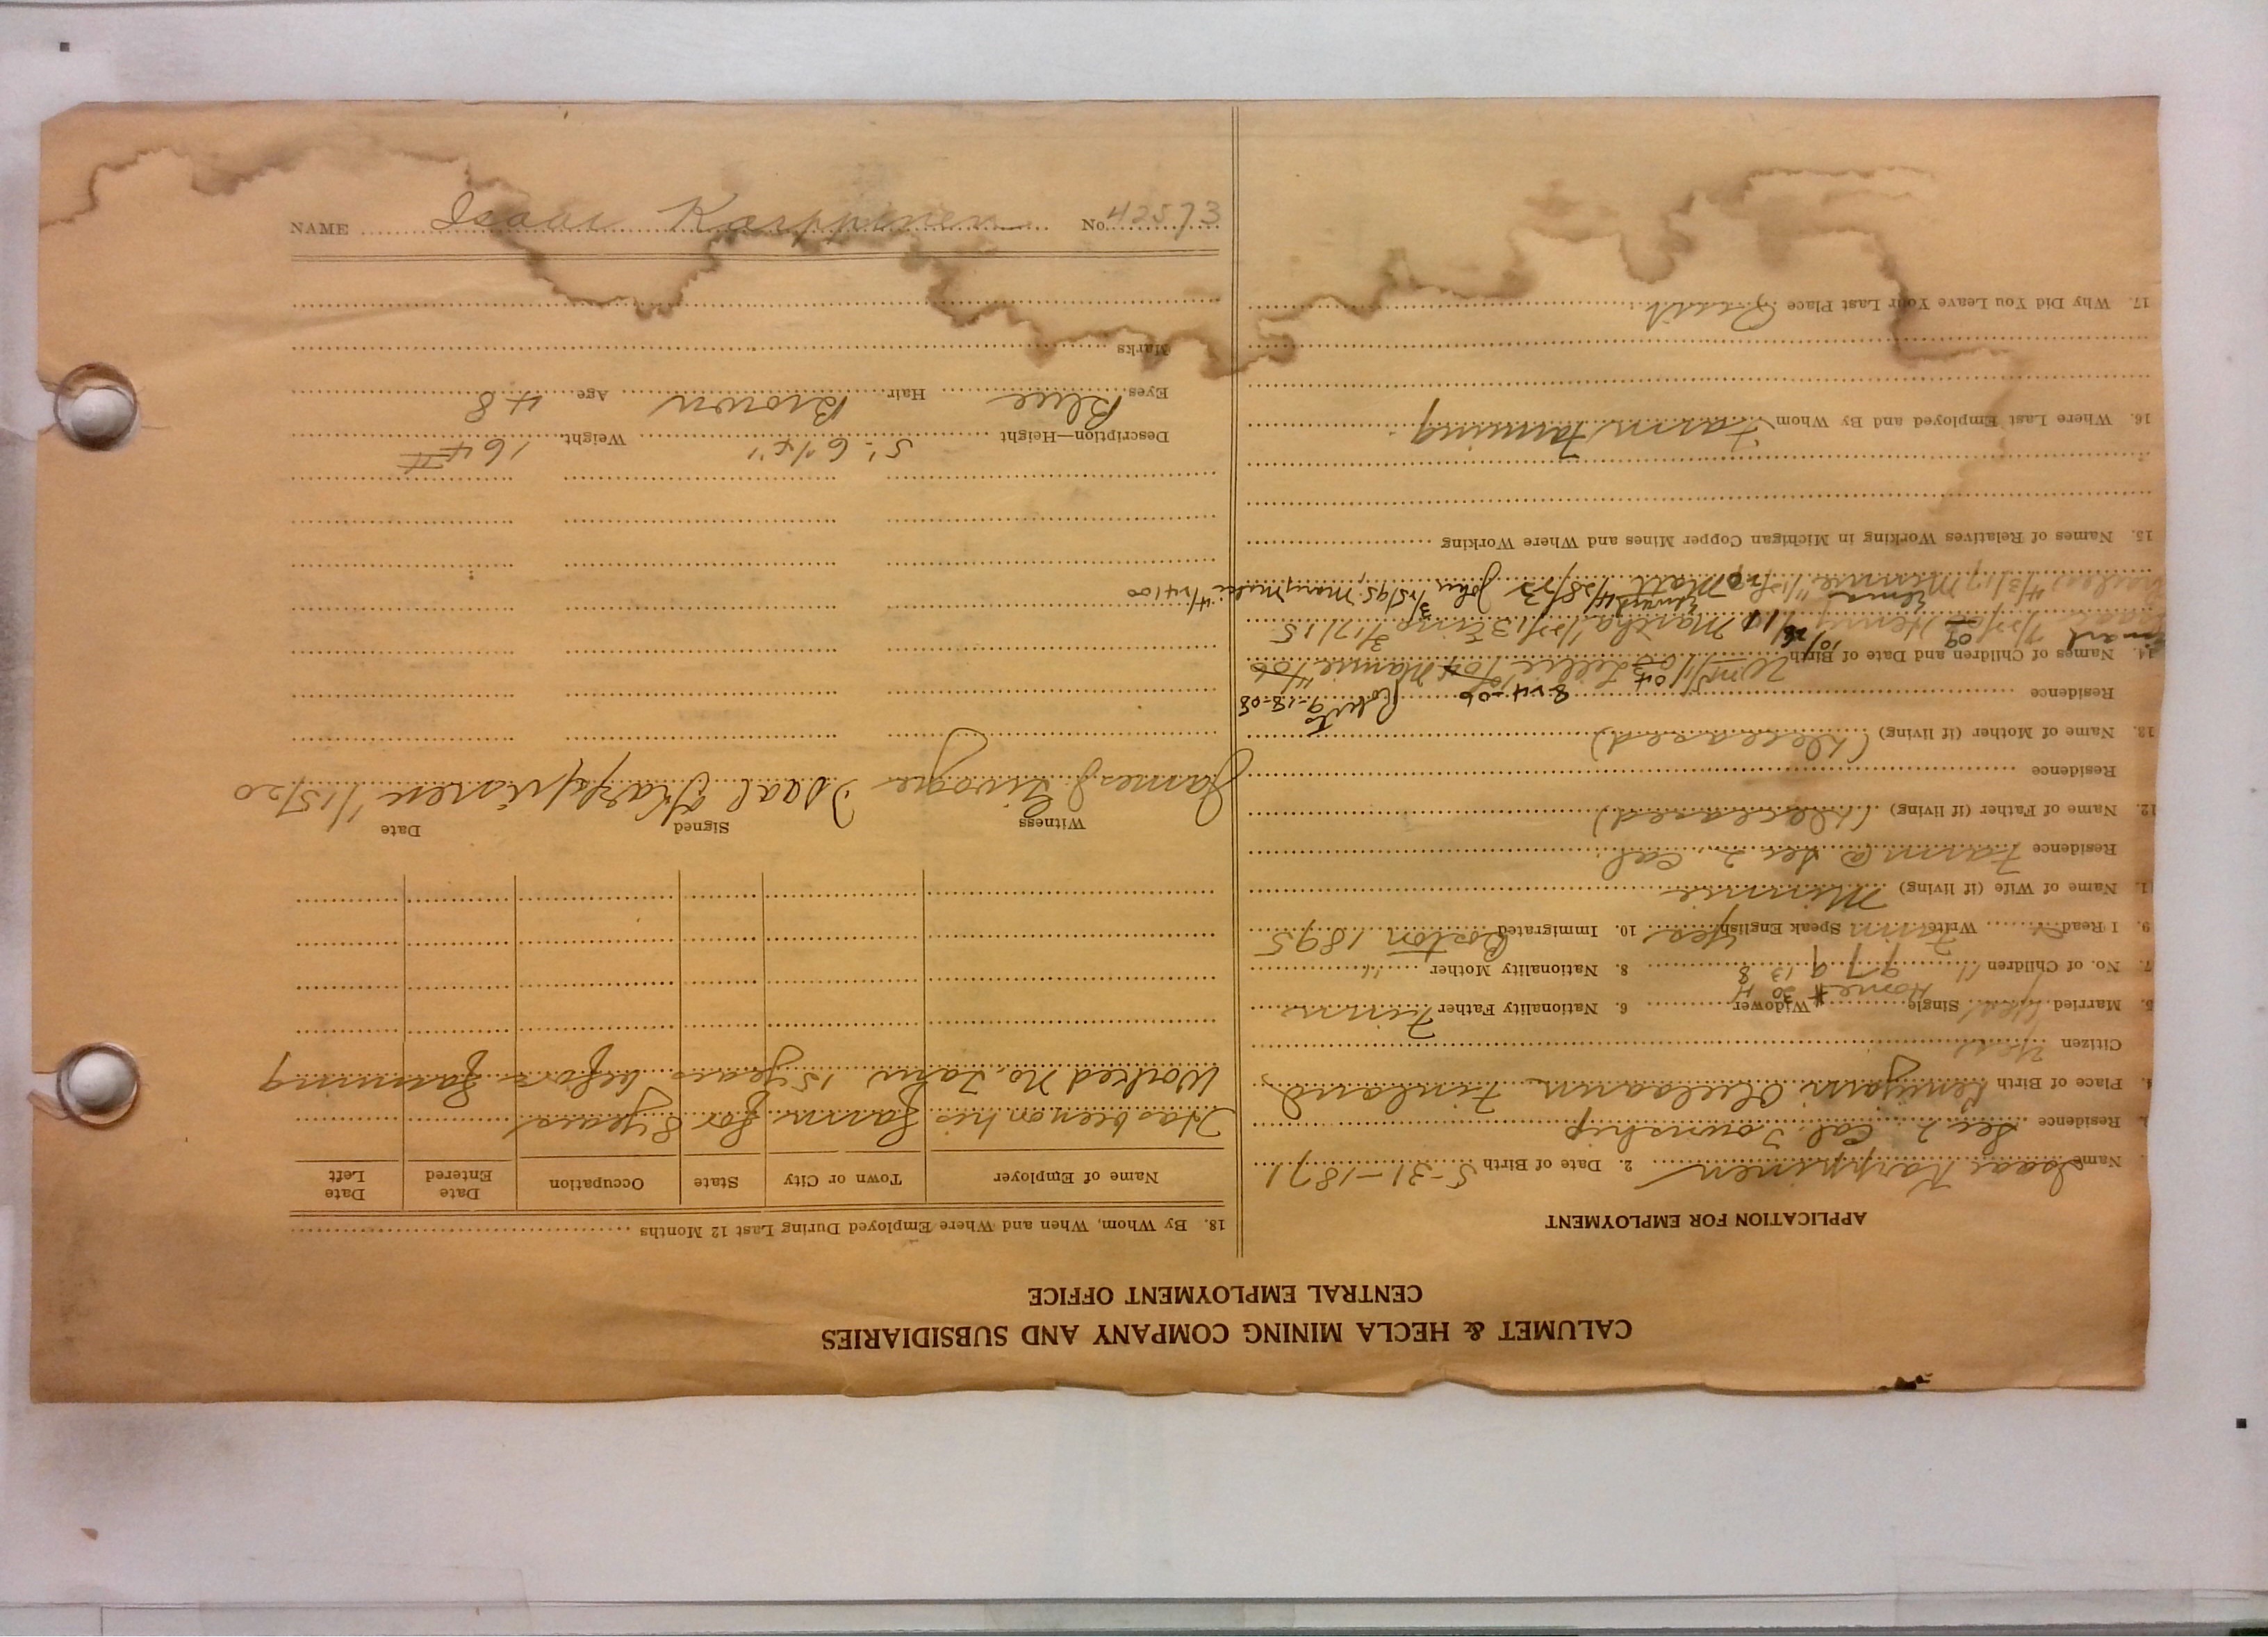 CALUMET & HECLA MINING COMPANY AND SUBSIDIARIES
CENTRAL EMPLOYMENT OFFICE
APPLICATION FOR EMPLOYMENT
Name Isaac Karppinen 2. Date of Birth 5-31-1871
Residence Sec 2. Cal. Township
4. Place of Birth Oulu Finland
Citizen Yes
5. Married Yes Single Widower 6. Nationality Father Finn
Home # 20 H
7. No. of Children 11 9 7 9 13 8 8. Nationality Mother "
9. I Read Write Finn Speak English Yes 10. Immigrated Boston 1895
11. Name of Wife (if living) Minnie
Residence Farm @ Sec 2. Cal.
12. Name of Father (if living) (deceased)
Residence
13. Name of Mother (if living) (deceased)
Residence 8-24-06 Robert 9-18-08
14. Names of Children and Date of Birth Lillie Mamie
Isaac Henry Martha Eino 3/17/15
Edward
Minnie Elma Matt John Mary
15. Names of Relatives Working in Michigan Copper Mines and Where Working
16. Where Last Employed and By Whom Farm Farming
17. Why Did You Leave Your Last Place Quit
18. By Whom, When and Where Employed During Last 12 Months
Name of Employer Town or City State Occupation Date Entered Date Left
Has been on his farm for 8 years
Worked No. Tam 15 years before farming
Witness Signed Date
James J. Isaac Karppinen 1/15/20
Description—Height 5'-6 1/4" Weight 164 #
Eyes Blue Hair Brown Age 48
Marks
NAME Isaac Karppinen No. 42573